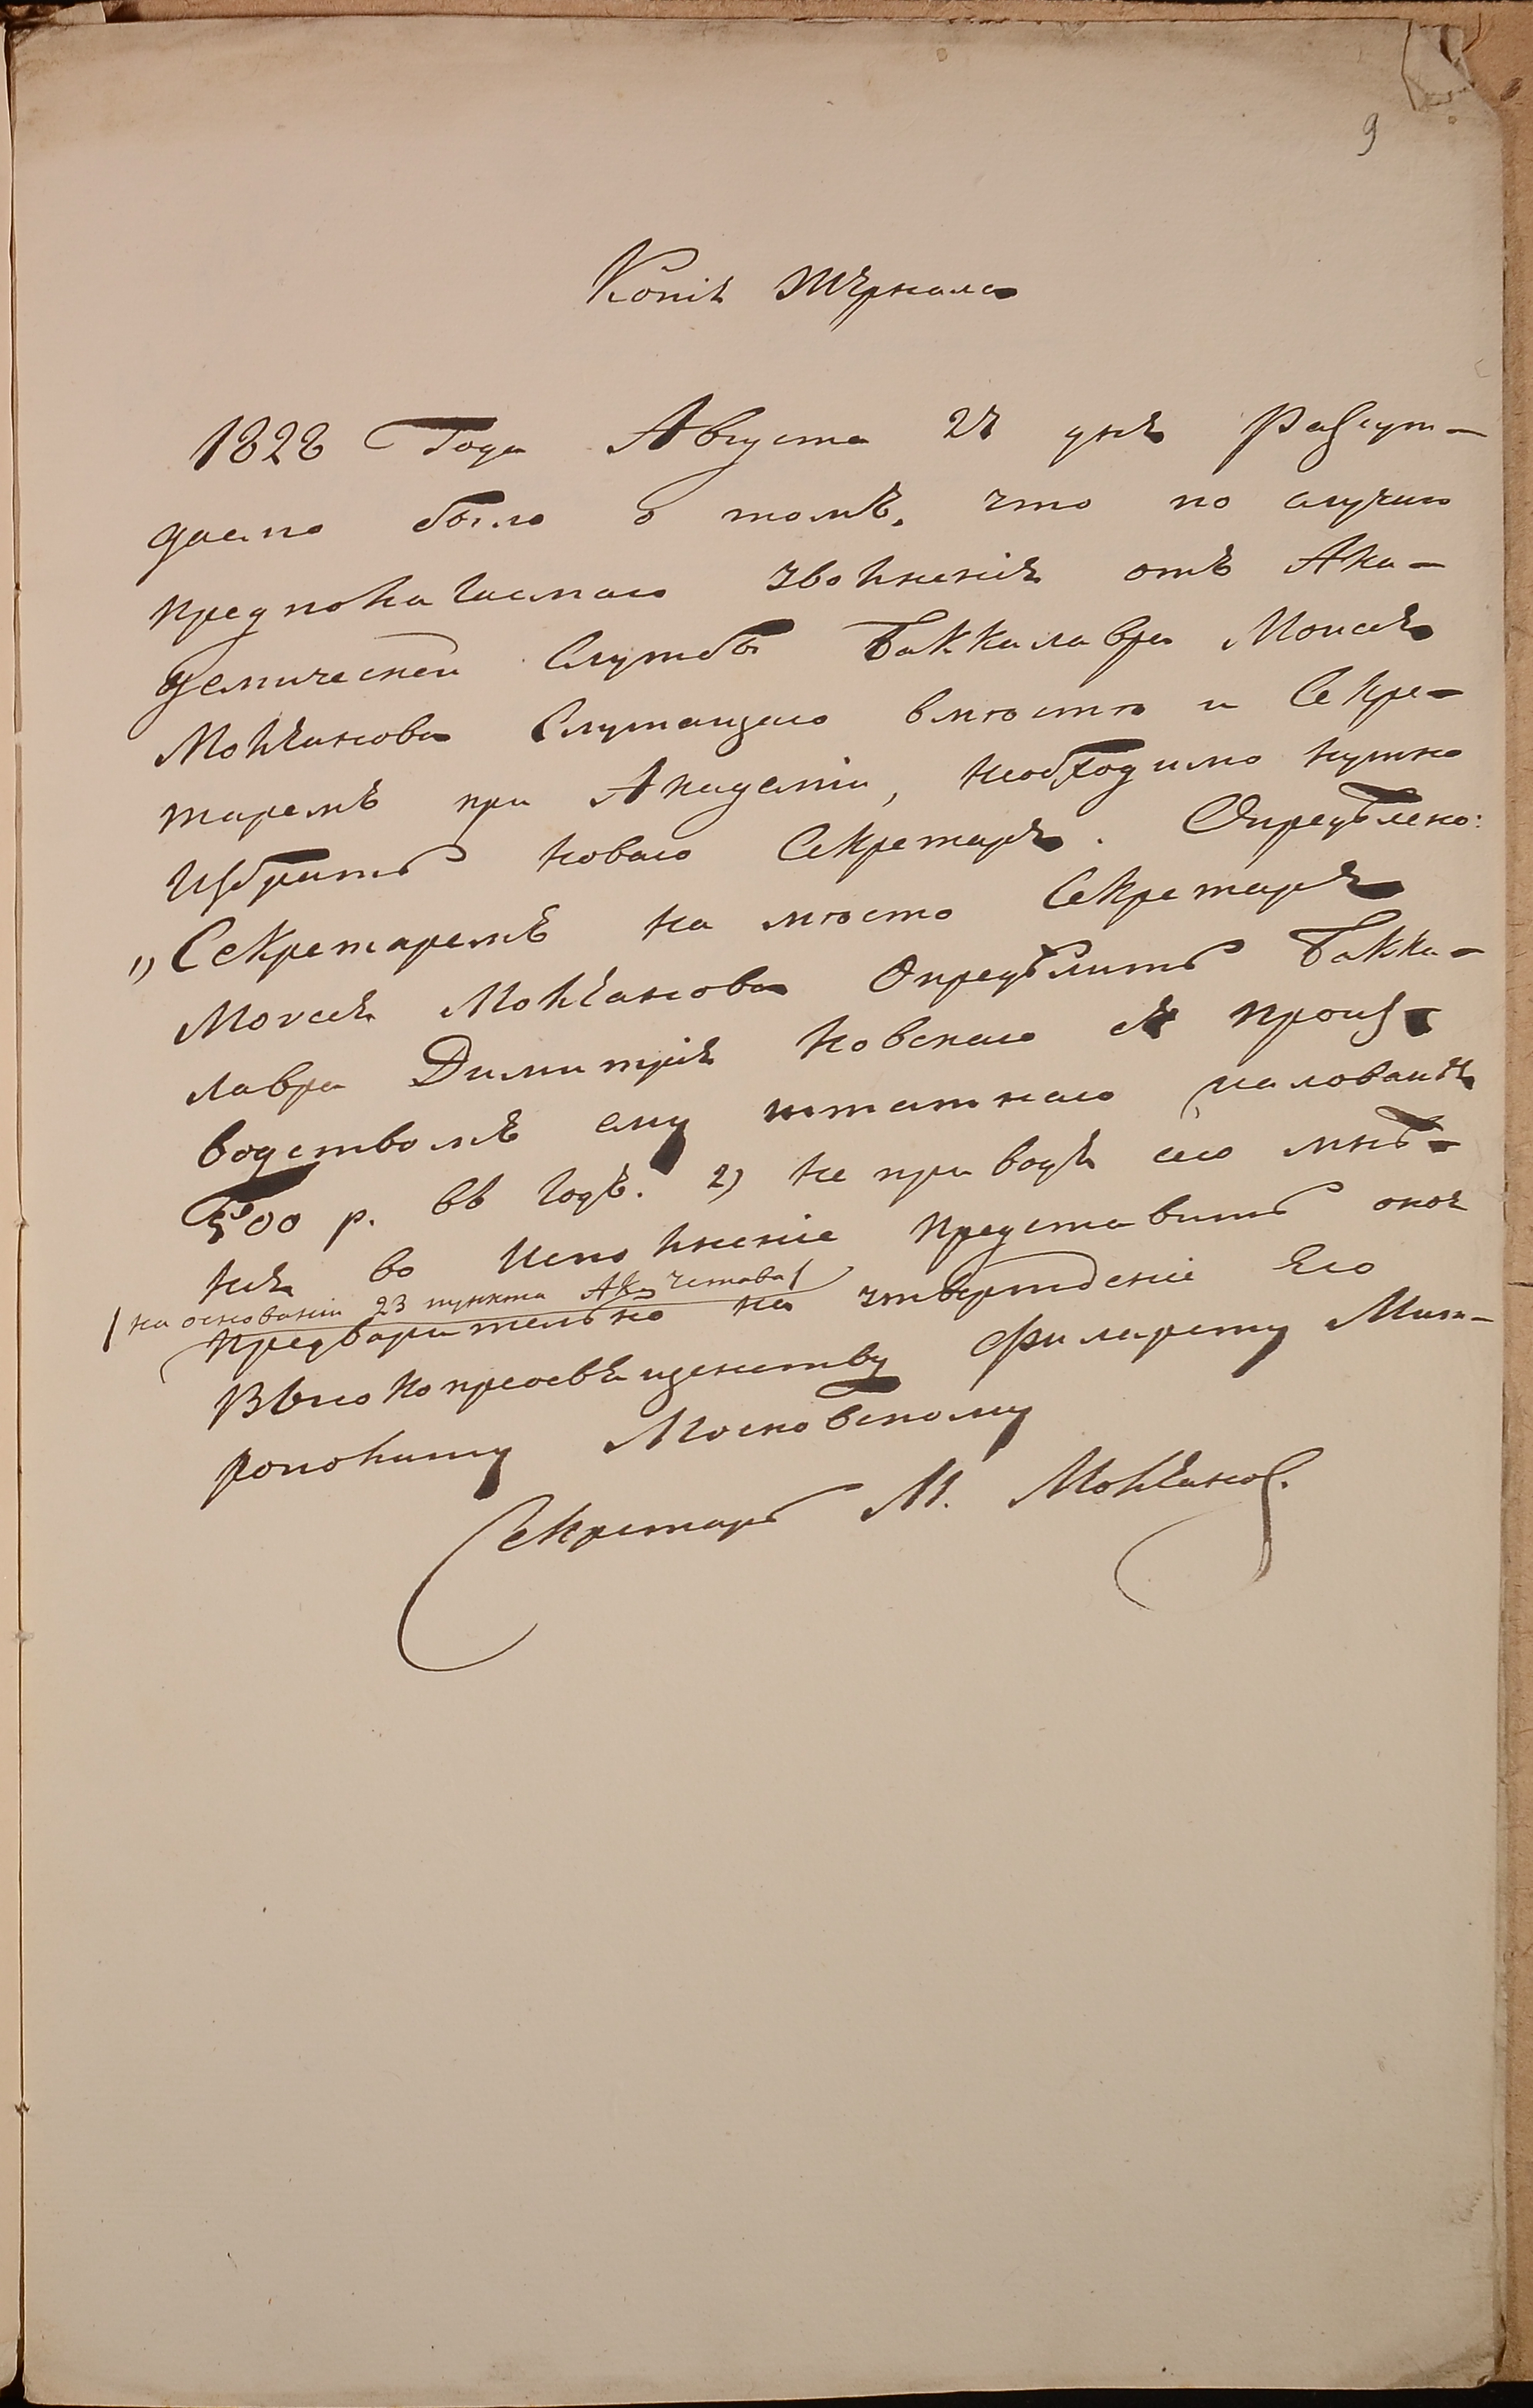 9
Копія журнала
1828 Года Августа 27 дня Разсуж-
даемо было о томъ, что по случаю
предполагаемаго увольненія отъ Ака-
демической службы Баккалавра Моисея
Молчанова Служащаго вместе и Секре-
таремъ при Академіи, необходимо нужно
Избрать новаго Секретаря. Опредѣлено:
1) Секретаремъ на место Секретаря
Моисея Молчанова Опредѣлить Бакка-
лавра Димитрія Новскаго съ произ-
водствомъ ему штатнаго жалованья
500 р. въ годъ. 2) Не приводя сего мнѣ-
нія во Исполненіе представить оное
/на основаніи 23 пункта Ак. Устава/
предварительно на утвержденіе Его
Высокопреосвященству Филарету Мит-
рополиту Московскому
Секретарь М. Молчановъ.